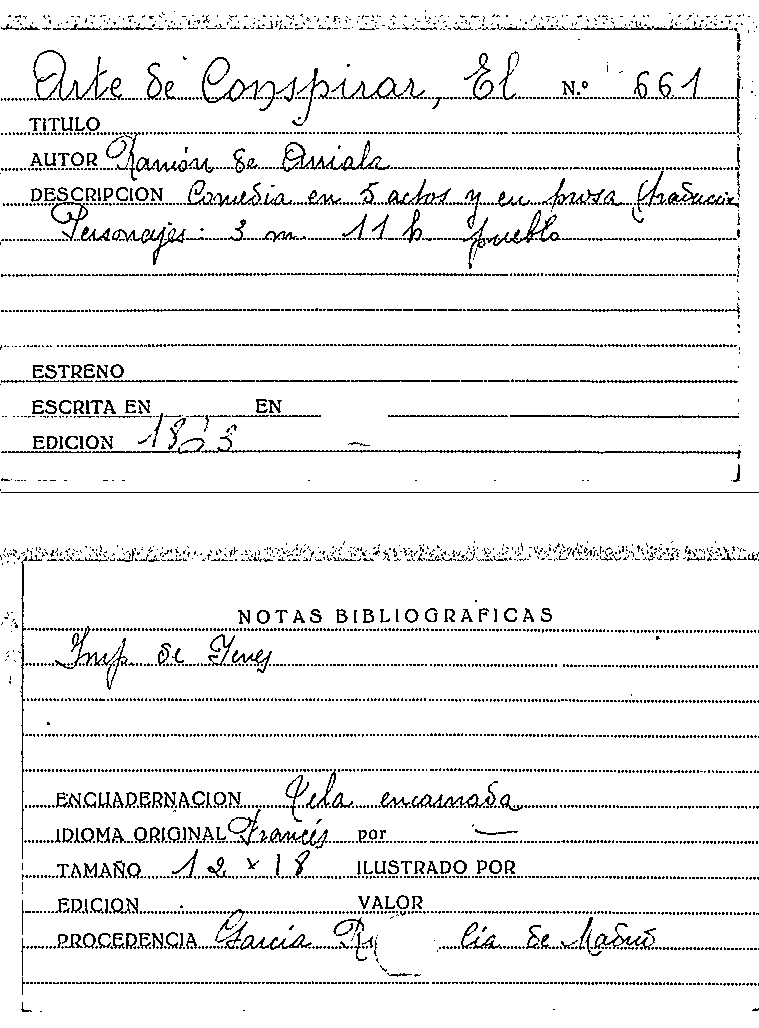 Arte de Conspirar, El N.º 661
TITULO
AUTOR Ramón de Arriala
DESCRIPCION Comedia en 5 actos y en prosa (traducción
Personajes: 3 m. 11 h. pueblo
ESTRENO
ESCRITA EN EN
EDICION
NOTAS BIBLIOGRAFICAS
Imp. de Yenes
ENCUADERNACION Tela encarnada
IDIOMA ORIGINAL Francés por —
TAMAÑO 12 x 18 ILUSTRADO POR
EDICION VALOR
PROCEDENCIA García lia de Madrid